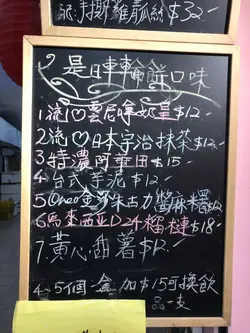 是日車輪餅口味
1流♡雲尼拿奶皇$12.-
2流♡日本宇治抹茶$12.-
3特濃阿華田$15.-
4台式芋泥$12.-
5Oreo金莎朱古力麻糬$12
6馬來西亞D24榴槤$18.-
7黃心甜薯$12.-
4~5個一盒加$15可換飲
品一支